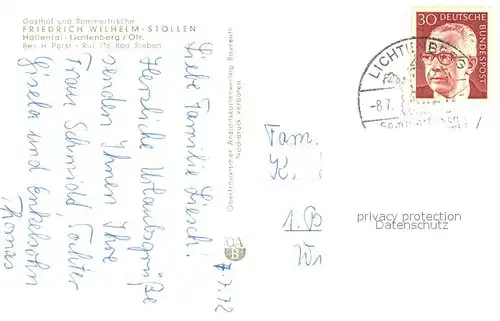 Gasthof und Sommerfrische
FRIEDRICH WILHELM-STOLLEN
Höllental-Lichtenberg/Ofr.
Bes. H. Pörst - Ruf 716 Bad Steben
Liebe Familie
Herzliche Urlaubsgrüße
senden Ihnen Ihre
Frau Schmidt, Tochter
Gisela und Enkelsohn
Thomas
7.7.72
Oberfränkischer Ansichtskartenverlag Bayreuth
Nachdruck verboten
OA
B
30 DEUTSCHE
BUNDESPOST
LICHTENBERG
-8.7.
Fam.
K.
1.B
W
privacy protection
Datenschutz